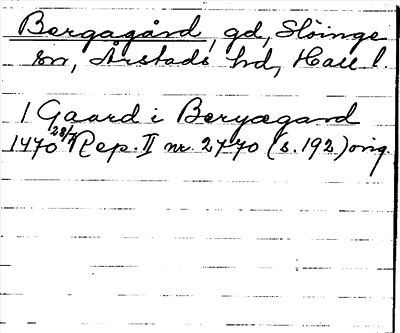 Bergagård, gd, Slöinge
sn, Årstads hd, Hall l.
1 Gaard i Beryægaard
1470 28/7 Rep. II nr. 2770 (s. 192) orig.